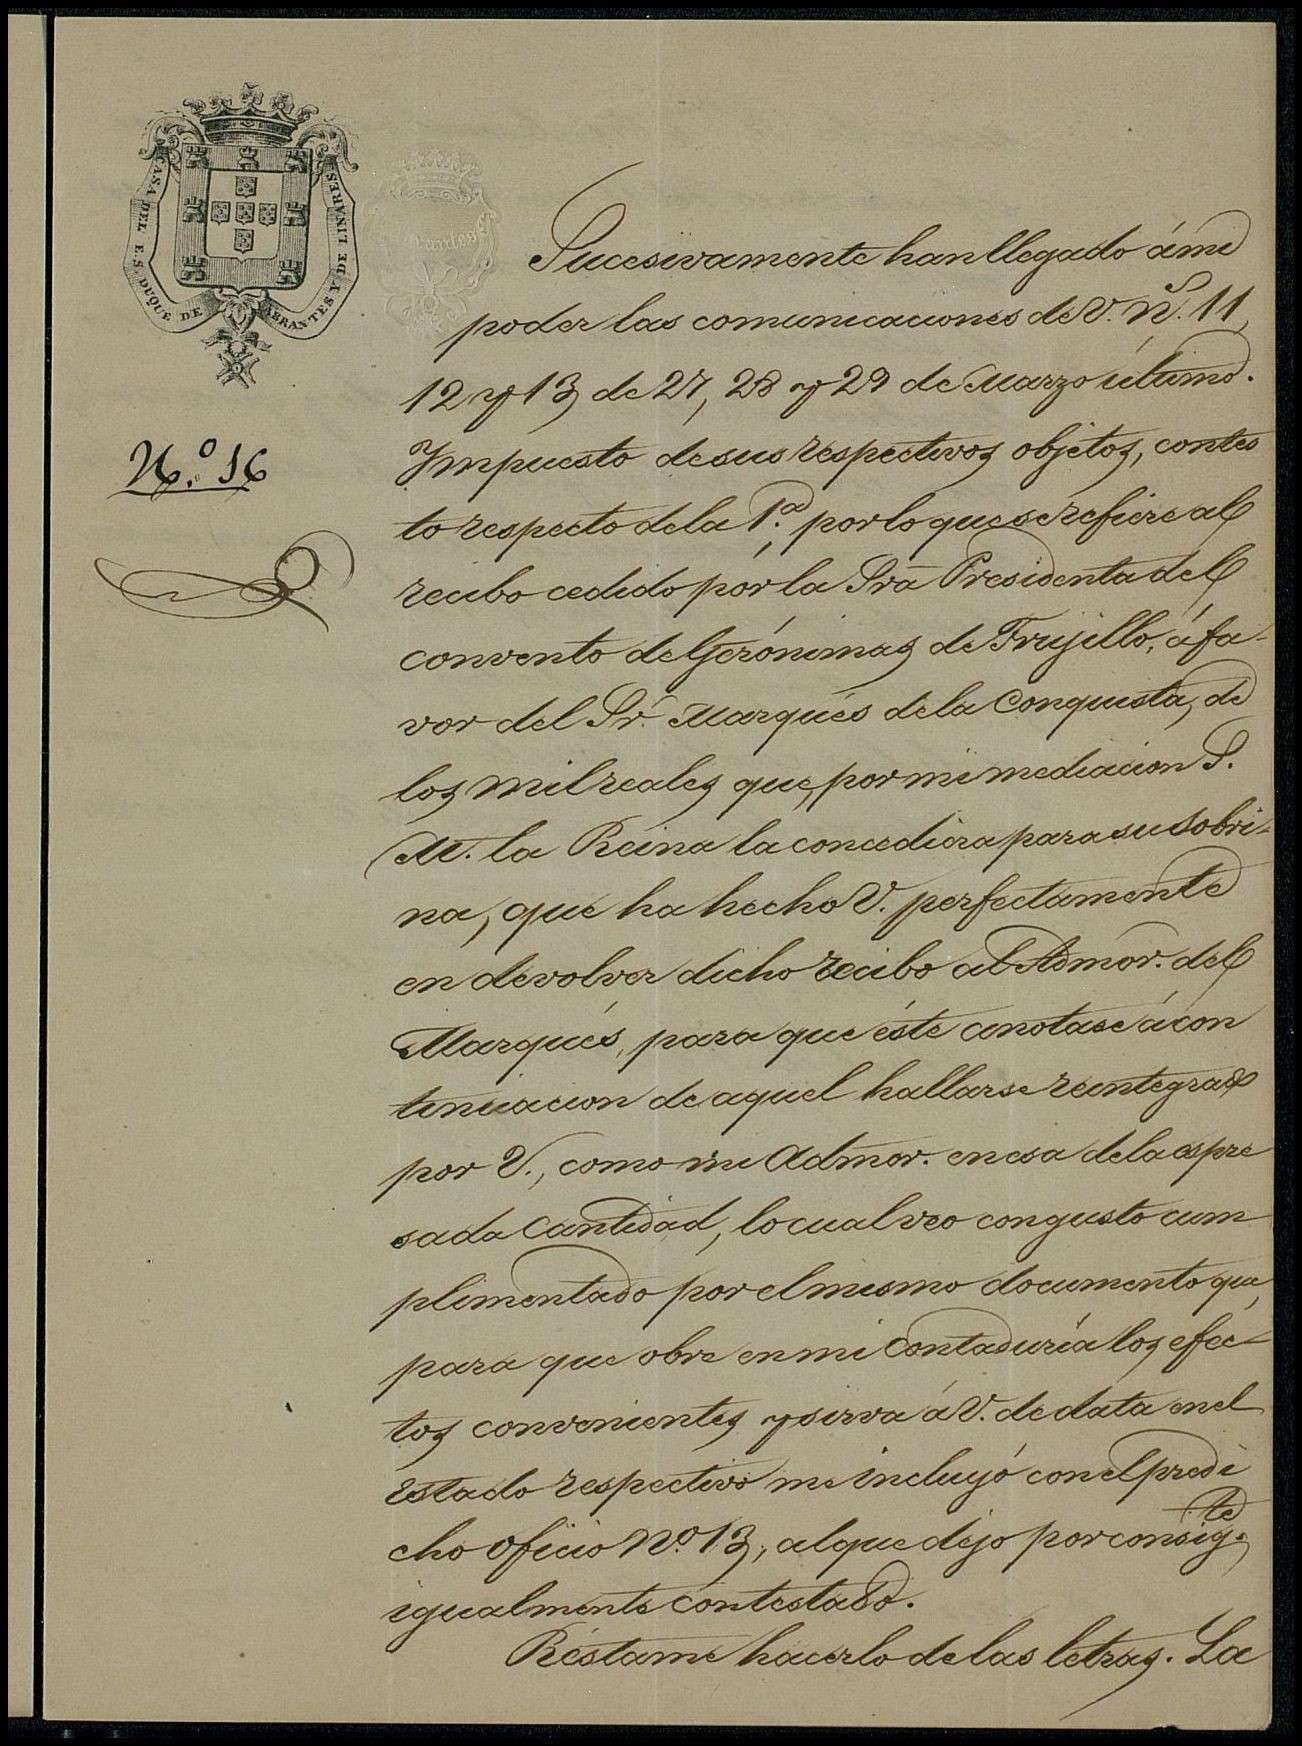 CASA DEL E.S. DUQUE DE ABRANTES Y DE LINARES
N.º 16
Sucesivamente han llegado á mi
poder las comunicaciones de V. N.s 11,
12 y 13 de 27, 28 y 29 de Marzo último.
Impuesto de sus respectivos objetos, contes
to respecto de la 1.ª, por lo que se refiere al
recibo cedido por la Sra Presidenta del
convento de Gerónimas de Trujillo, á fa-
vor del Sr. Marqués de la Conquista, de
los mil reales que, por mi mediacion S.
M. la Reina la concediera para su sobri-
na, que ha hecho V. perfectamente
en devolver dicho recibo al Admor. del
Marqués, para que éste anotase á con
tinuacion de aquel hallarse reintegrado
por V., como mi Admor. en esa de la espre
sada cantidad, lo cual veo con gusto cum
plimentado por el mismo documento que,
para que obre en mi Contaduría los efec-
tos convenientes y sirva á V. de data en el
estado respectivo me incluyó con el predi
cho oficio N.º 13, al que dejo por consig.te
igualmente contestado.
Réstame hacerlo de las letras. La